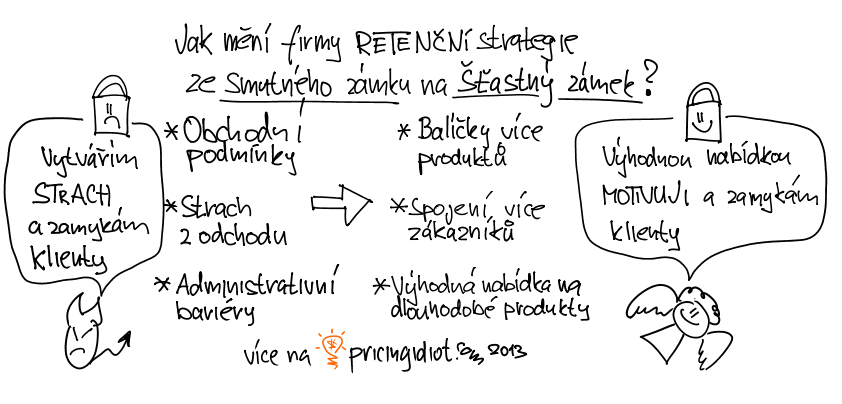 Jak mění firmy RETENČNÍ strategie
ze smutného zámku na šťastný zámek?
Vytvářím
STRACH
a zamykám
klienty
* Obchodní
podmínky
* Strach
z odchodu
* Administrativní
bariéry
* Balíčky více
produktů
* Spojení více
zákazníků
* Výhodná nabídka na
dlouhodobé produkty
Výhodnou nabídkou
MOTIVUJI a zamykám
klienty
více na pricingidiot.com 2013